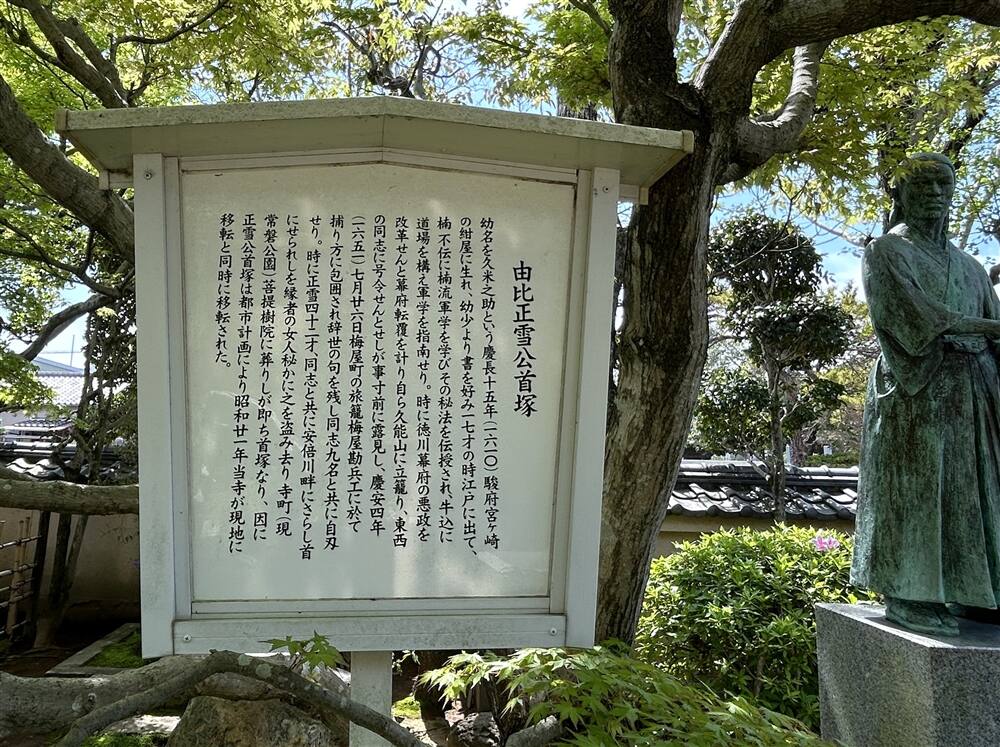 由比正雪公首塚
幼名を久米之助という慶長十五年(一六一〇)駿府宮ヶ崎
の紺屋に生れ、幼少より書を好み一七才の時江戸に出て、
楠不伝に楠流軍学を学びその秘法を伝授され、牛込に
道場を構え軍学を指南せり。時に徳川幕府の悪政を
改革せんと幕府転覆を計り自ら久能山に立籠り、東西
の同志に号令せんとせしが事寸前に露見し、慶安四年
(一六五一)七月廿六日梅屋町の旅籠梅屋勘兵工に於て
捕り方に包囲され辞世の句を残し同志九名と共に自刃
せり。時に正雪四十二才、同志と共に安倍川畔にさらし首
にせられしを縁者の女人秘かに之を盗み去り寺町(現
常磐公園)菩提樹院に葬りしが即ち首塚なり、因に
正雪公首塚は都市計画により昭和廿一年当寺が現地に
移転と同時に移転された。